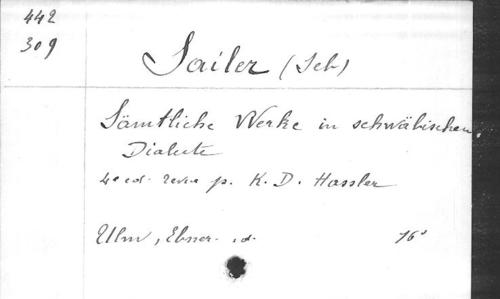 442
309
Sailer (Seb)
Sämtliche Werke in schwäbischen
Dialecte
4e ed. revue p. K. D. Hassler
Ulm, Ebner. s.d. 16°